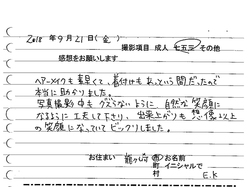 2018年9月21日(金)
撮影項目 成人 七五三 その他
感想をお願いします
ヘアーメイクも素早くて、着付けもあっという間だったので
本当に助かりました。
写真撮影中もグズらないように自然な笑顔に
なるように工夫して下さり、出来上がりも想像以上
の笑顔になっていてビックリしました。
お住まい 龍ヶ崎 市 お名前
町 イニシャルで
村 E.K